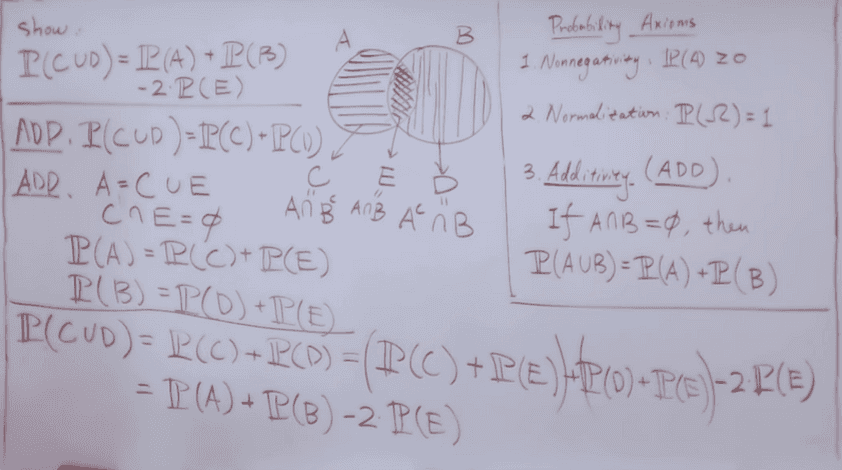 Show:
ℙ(C∪D) = ℙ(A) + ℙ(B)
-2·ℙ(E)
ADD. ℙ(C∪D) = ℙ(C) + ℙ(D)
ADD. A = C ∪ E
C ∩ E = ∅
ℙ(A) = ℙ(C) + ℙ(E)
ℙ(B) = ℙ(D) + ℙ(E)
A B
C E D
" " "
A∩Bᶜ A∩B Aᶜ∩B
Probability Axioms
1. Nonnegativity. ℙ(A) ≥ 0
2. Normalization: ℙ(Ω) = 1
3. Additivity. (ADD).
If A∩B = ∅, then
ℙ(A∪B) = ℙ(A) + ℙ(B)
ℙ(C∪D) = ℙ(C) + ℙ(D) = (ℙ(C) + ℙ(E)) + (ℙ(D) + ℙ(E)) - 2·ℙ(E)
= ℙ(A) + ℙ(B) - 2 ℙ(E)